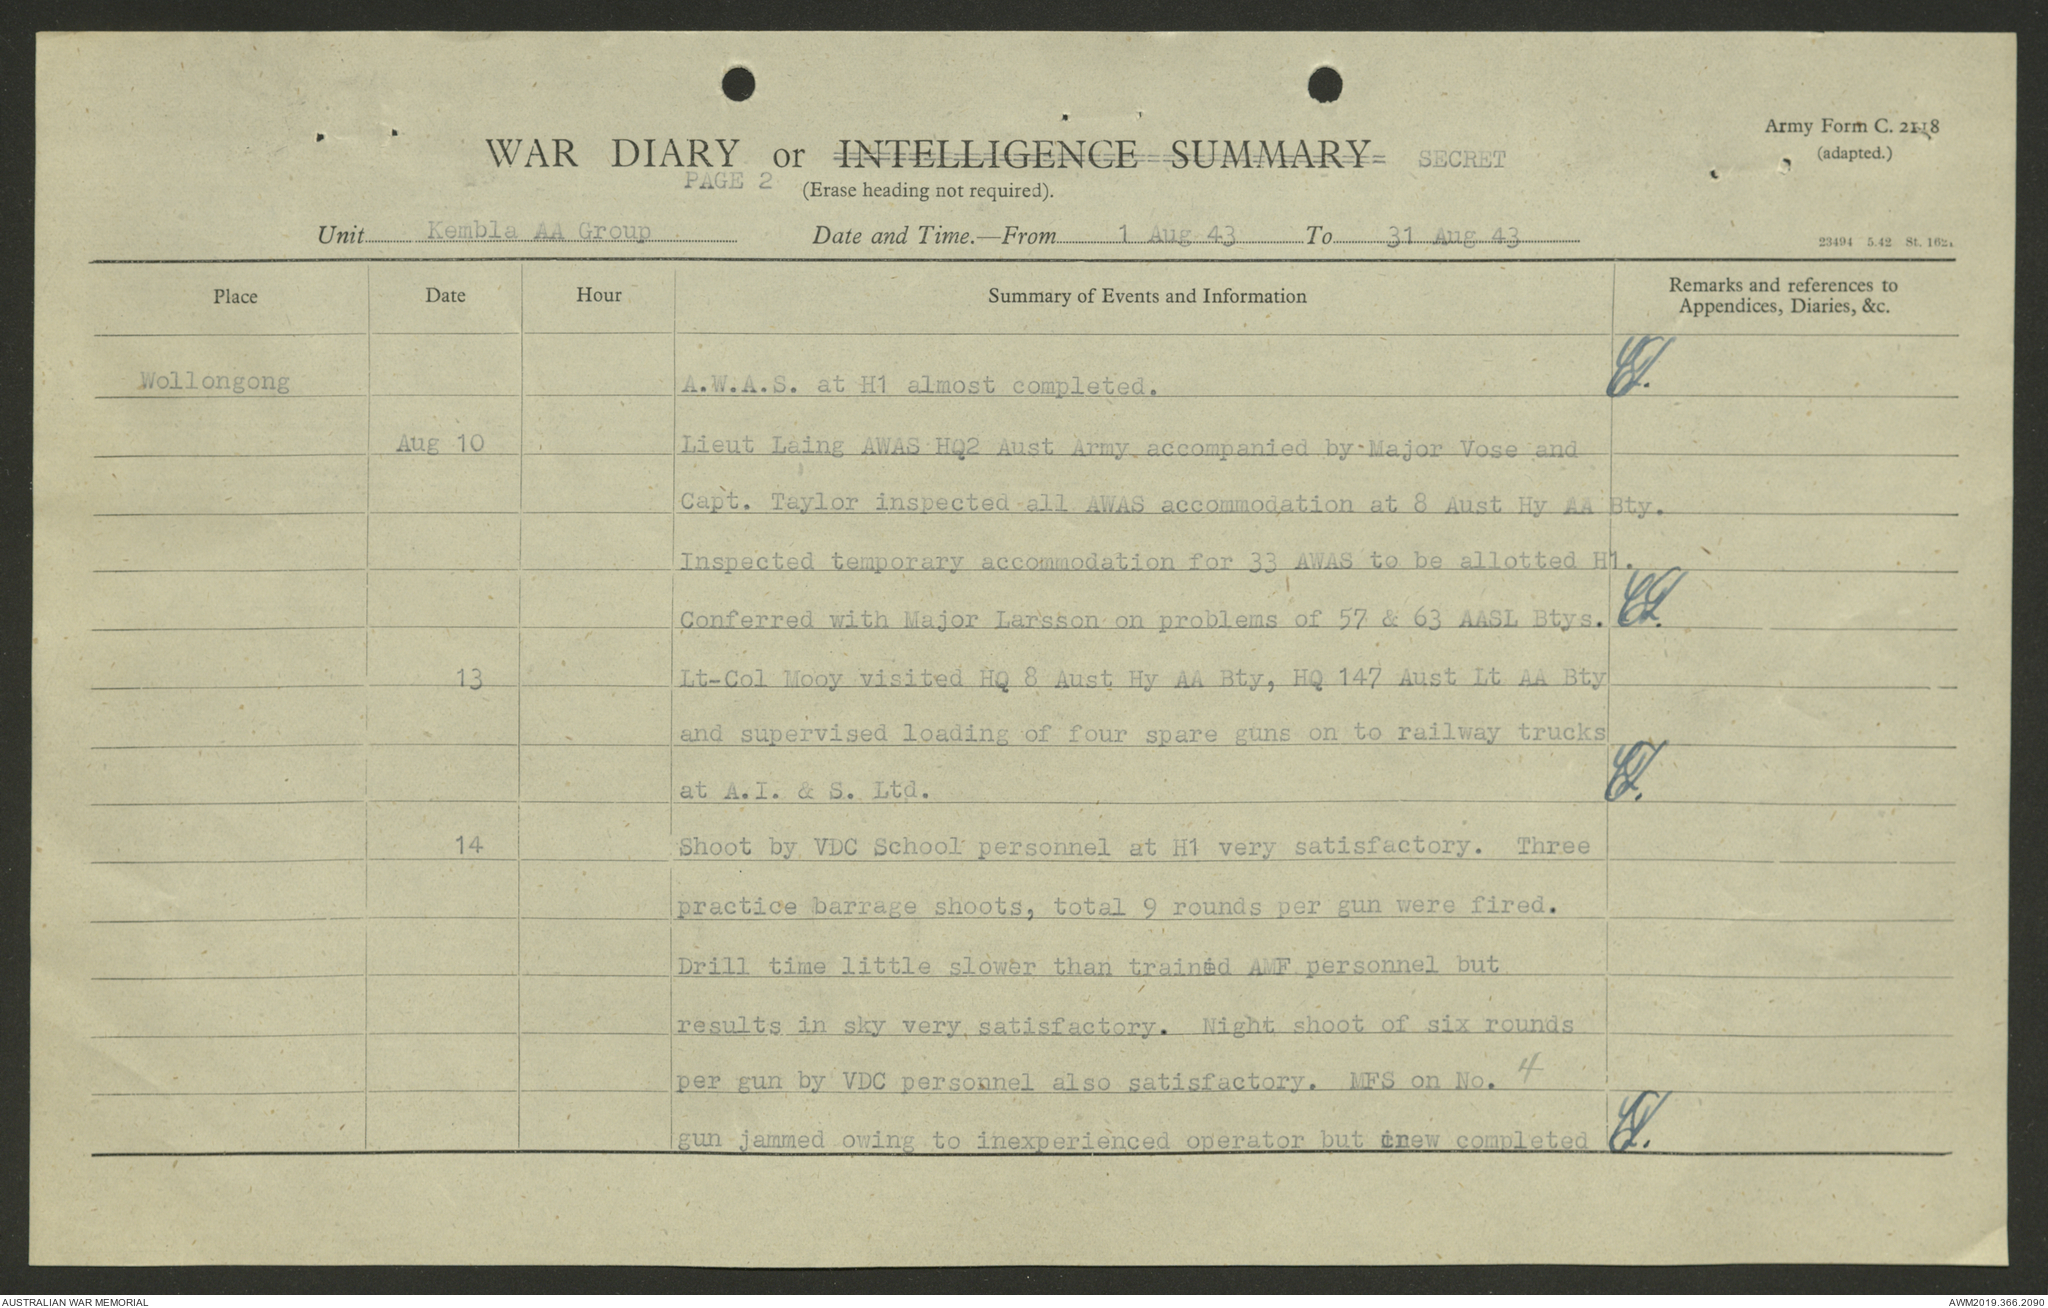 Army Form C. 2118
(adapted.)
WAR DIARY or INTELLIGENCE SUMMARY SECRET
PAGE 2 (Erase heading not required).
Unit Kembla AA Group Date and Time.—From 1 Aug 43 To 31 Aug 43
23494 5.42 St. 162
Place Date Hour Summary of Events and Information Remarks and references to
Appendices, Diaries, &c.
Wollongong A.W.A.S. at H1 almost completed.
Aug 10 Lieut Laing AWAS HQ2 Aust Army accompanied by Major Vose and
Capt. Taylor inspected all AWAS accommodation at 8 Aust Hy AA Bty.
Inspected temporary accommodation for 33 AWAS to be allotted H1.
Conferred with Major Larsson on problems of 57 & 63 AASL Btys.
13 Lt-Col Mooy visited HQ 8 Aust Hy AA Bty, HQ 147 Aust Lt AA Bty
and supervised loading of four spare guns on to railway trucks
at A.I. & S. Ltd.
14 Shoot by VDC School personnel at H1 very satisfactory. Three
practice barrage shoots, total 9 rounds per gun were fired.
Drill time little slower than trained AMF personnel but
results in sky very satisfactory. Night shoot of six rounds
per gun by VDC personnel also satisfactory. MFS on No. 4
gun jammed owing to inexperienced operator but crew completed
AUSTRALIAN WAR MEMORIAL AWM2019.366.2090